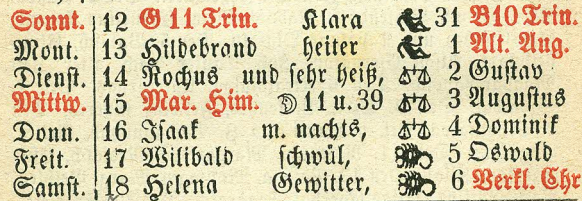 Sonnt. 12 G 11 Trin. Klara 31 B10 Trin.
Mont. 13 Hildebrand heiter 1 Alt. Aug.
Dienst. 14 Rochus und sehr heiß, 2 Gustav
Mittw. 15 Mar. Him. ☽ 11 u. 39 3 Augustus
Donn. 16 Isaak m. nachts, 4 Dominik
Freit. 17 Wilibald schwül, 5 Oswald
Samst. 18 Helena Gewitter, 6 Verkl. Chr